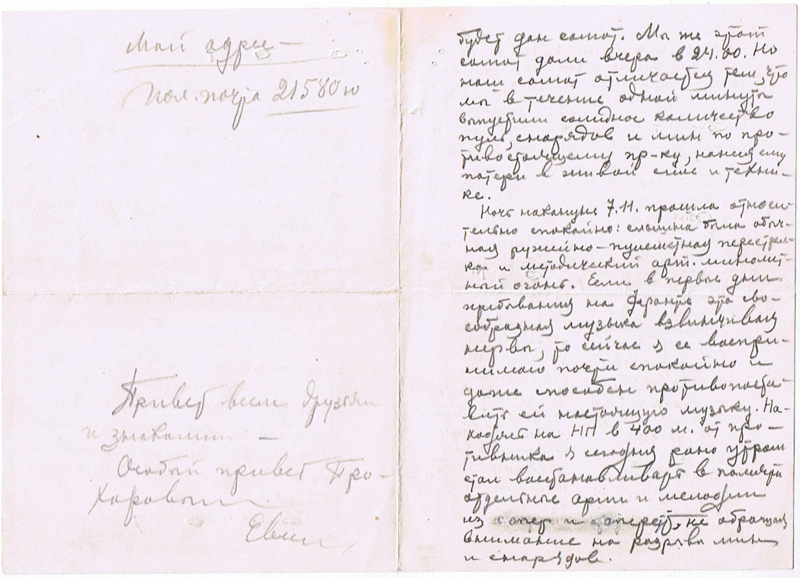 Мой адрес —
Пол. почта 21580 ю
Привет всем друзьям
и знакомым —
Особый привет Про-
харовым
будет дан салют. Мы же этот
салют дали вчера в 24.00. Но
наш салют отличается тем, что
мы в течение одной минуты
выпустили солидное количество
пуль, снарядов и мин по про-
тивостоящему пр-ку, нанеся ему
потери в живой силе и техни-
ке.
Ночь накануне 7.11. прошла относи-
тельно спокойно: слышна была обыч-
ная ружейно-пулеметная перестрел-
ка и методический арт. миномет-
ный огонь. Если в первые дни
пребывания на фронте эта сво-
еобразная музыка взвинчивала
нервы, то сейчас я ее воспри-
нимаю почти спокойно и
даже способен противопоста-
вить ей настоящую музыку. На-
ходясь на НП в 400 м. от про-
тивника я сегодня рано утром
стал восстанавливать в памяти
отдельные арии и мелодии
из опер и оперетт, не обращая
внимание на разрывы мин
и снарядов.